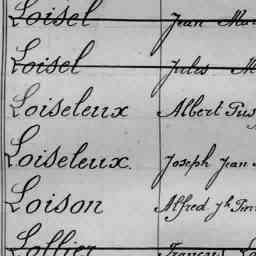 Loisel Jean
Loisel Jules
Loiseleux Albert
Loiseleux. Joseph Jean
Loison Alfred
Lollier François